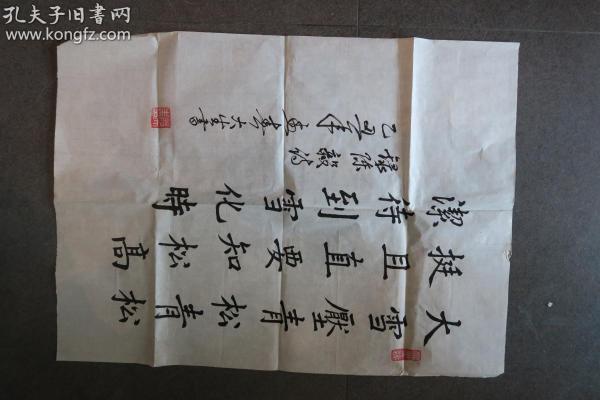 孔夫子旧书网
www.kongfz.com
大雪壓青松青松
挺且直要知松高
潔待到雪化時
錄陳毅詩
乙丑年書